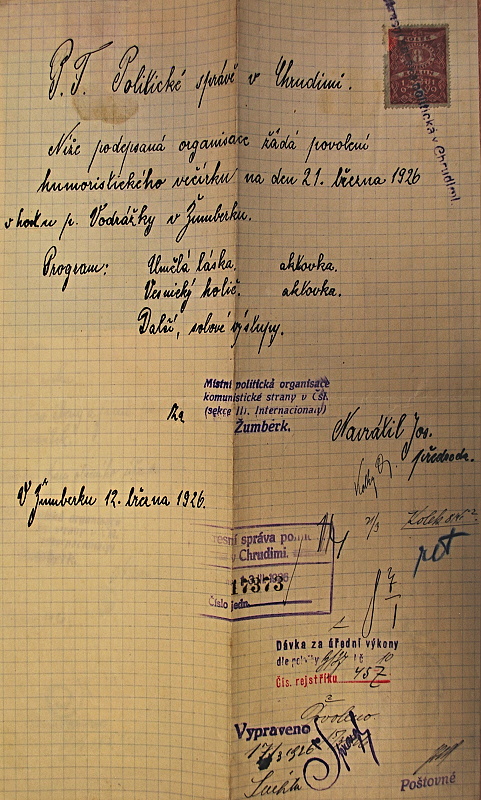 P. T. Politické správě v Chrudimi.
Níže podepsaná organisace žádá povolení
humoristického večírku na den 21. března 1926
v host. u p. Vodrážky v Žumberku.
Program: Umělá láska. aktovka.
Vesnický holič. aktovka.
Další, solové výstupy.
Místní politická organisace
komunistické strany v Čsl.
(sekce III. Internacionaly)
Za Žumberk.
Navrátil Jos.
předseda.
V Žumberku 12. března 1926.
21/3 Kolek
resní správa polit
v Chrudimi.
17373
Číslo jedn.
Dávka za úřední výkony
dle položky
Čís. rejstříku 457
Povoleno
Vypraveno
17/3 1926
Poštovné
politická v Chrudimi.